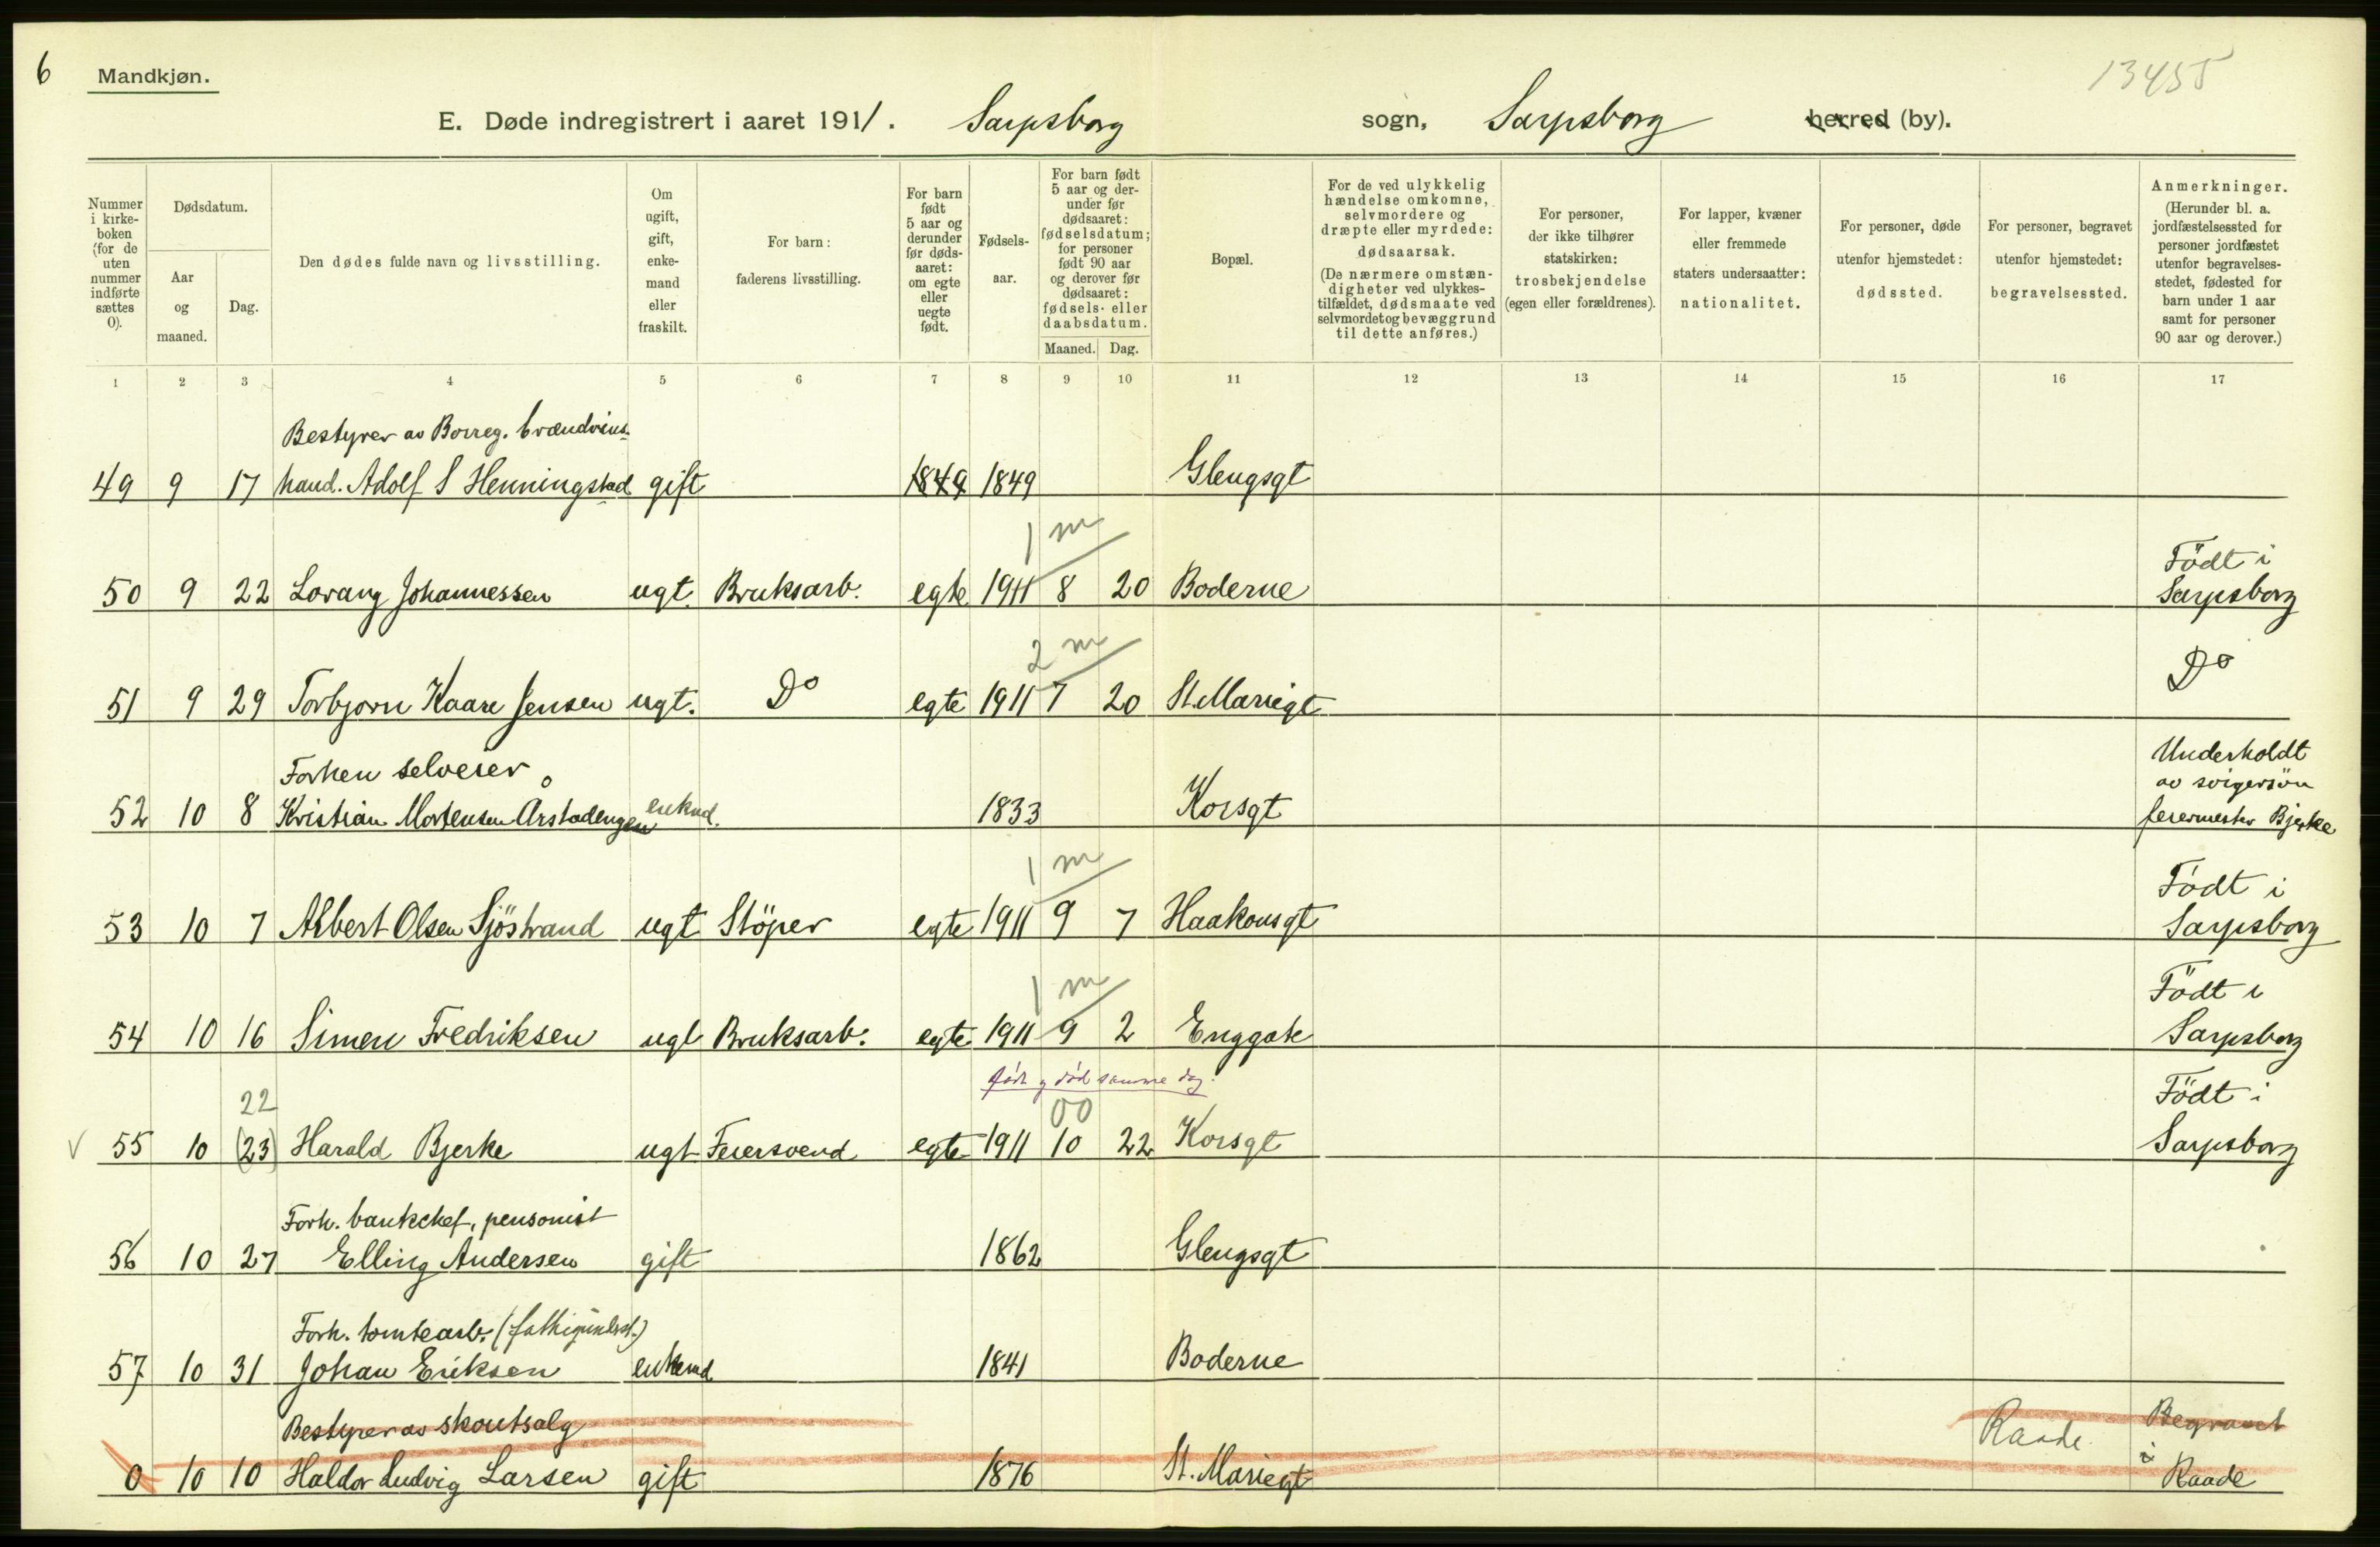 6
Mandkjøn.
13455
E. Døde indregistrert i aaret 1911. Sarpsborg sogn, Sarpsborg herred (by).
Nummer i kirke- boken (for de uten nummer indførte sættes 0).
Dødsdatum.
Aar og maaned.
Dag.
Den dødes fulde navn og livsstilling.
Om ugift, gift, enke- mand eller fraskilt.
For barn: faderens livsstilling.
For barn født 5 aar og derunder før døds- aaret: om egte eller uegte født.
Fødsels- aar.
For barn født 5 aar og der- under før dødsaaret: fødselsdatum; for personer født 90 aar og derover før dødsaaret: fødsels- eller daabsdatum.
Maaned. Dag.
Bopæl.
For de ved ulykkelig hændelse omkomne, selvmordere og dræpte eller myrdede: dødsaarsak. (De nærmere omstæn- digheter ved ulykkes- tilfældet, dødsmaate ved selvmordet og bevæggrund til dette anføres.)
For personer, der ikke tilhører statskirken: trosbekjendelse (egen eller forældrenes).
For lapper, kvæner eller fremmede staters undersaatter: nationalitet.
For personer, døde utenfor hjemstedet: dødssted.
For personer, begravet utenfor hjemstedet: begravelsessted.
Anmerkninger. (Herunder bl. a. jordfæstelsessted for personer jordfæstet utenfor begravelses- stedet, fødested for barn under 1 aar samt for personer 90 aar og derover.)
1 2 3 4 5 6 7 8 9 10 11 12 13 14 15 16 17
Bestyrer av Borreg. brændvins-
49 9 17 hand. Adolf S Henningstad gift 1849 1849 Glengsgt
1 m
Födt i
50 9 22 Lorang Johannessen ugt. Bruksarb. egte 1911 8 20 Boderne Sarpsborg
2 m
51 9 29 Torbjorn Kaare Jensen ugt. Do egte 1911 7 20 St. Mariegt Do
Forhen selveier Underholdt
av svigersön
52 10 8 Kristian Mortensen Årstadengen enkmd. 1833 Korsgt feiermester Bjerke
1 m
Födt i
53 10 7 Albert Olsen Sjöstrand ugt Stöper egte 1911 9 7 Haakonsgt Sarpsborg
1 m
Födt i
54 10 16 Simen Fredriksen ugt Bruksarb. egte 1911 9 2 Enggate Sarpsborg
født og død samme dag.
22 00 Födt i
V 55 10 (23) Harald Bjerke ugt Feiersvend egte 1911 10 22 Korsgt Sarpsborg
Forh. bankchef, pensonist
56 10 27 Elling Andersen gift 1862 Glengsgt
Forh. tomtearb.
57 10 31 Johan Eriksen enkemd 1841 Boderne
Bestyrer av skoutsalg Raade. Begravet
i
0 10 10 Haldor Ludvig Larsen gift 1876 St. Mariegt Raade